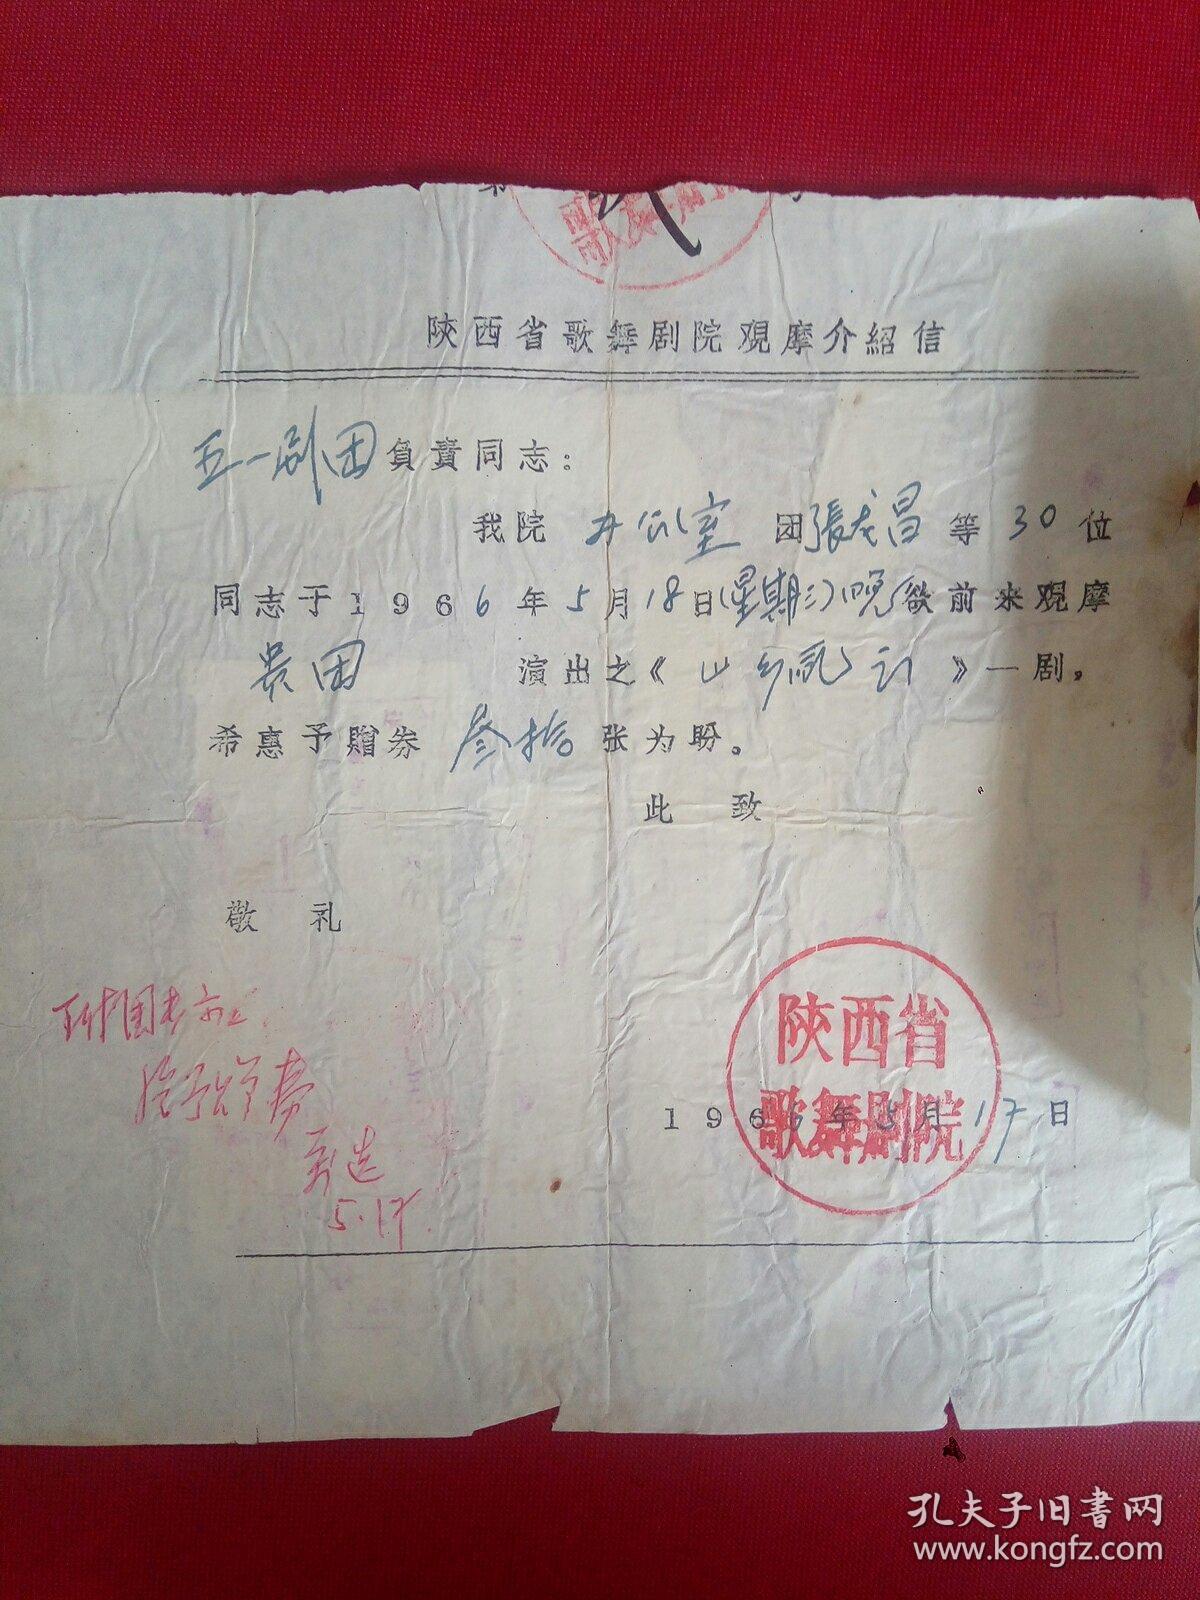 歌舞剧
陝西省歌舞剧院观摩介紹信
五一剧团負責同志：
我院 办公室 团張戈昌等30位
同志于1966年5月18日(星期三)晚欲前来观摩
贵团 演出之《山乡风云》一剧。
希惠予贈券 叁拾 张为盼。
此 致
敬 礼
给予赠券
5.17.
陝西省
歌舞剧院
1966年5月17日
孔夫子旧书网
www.kongfz.com